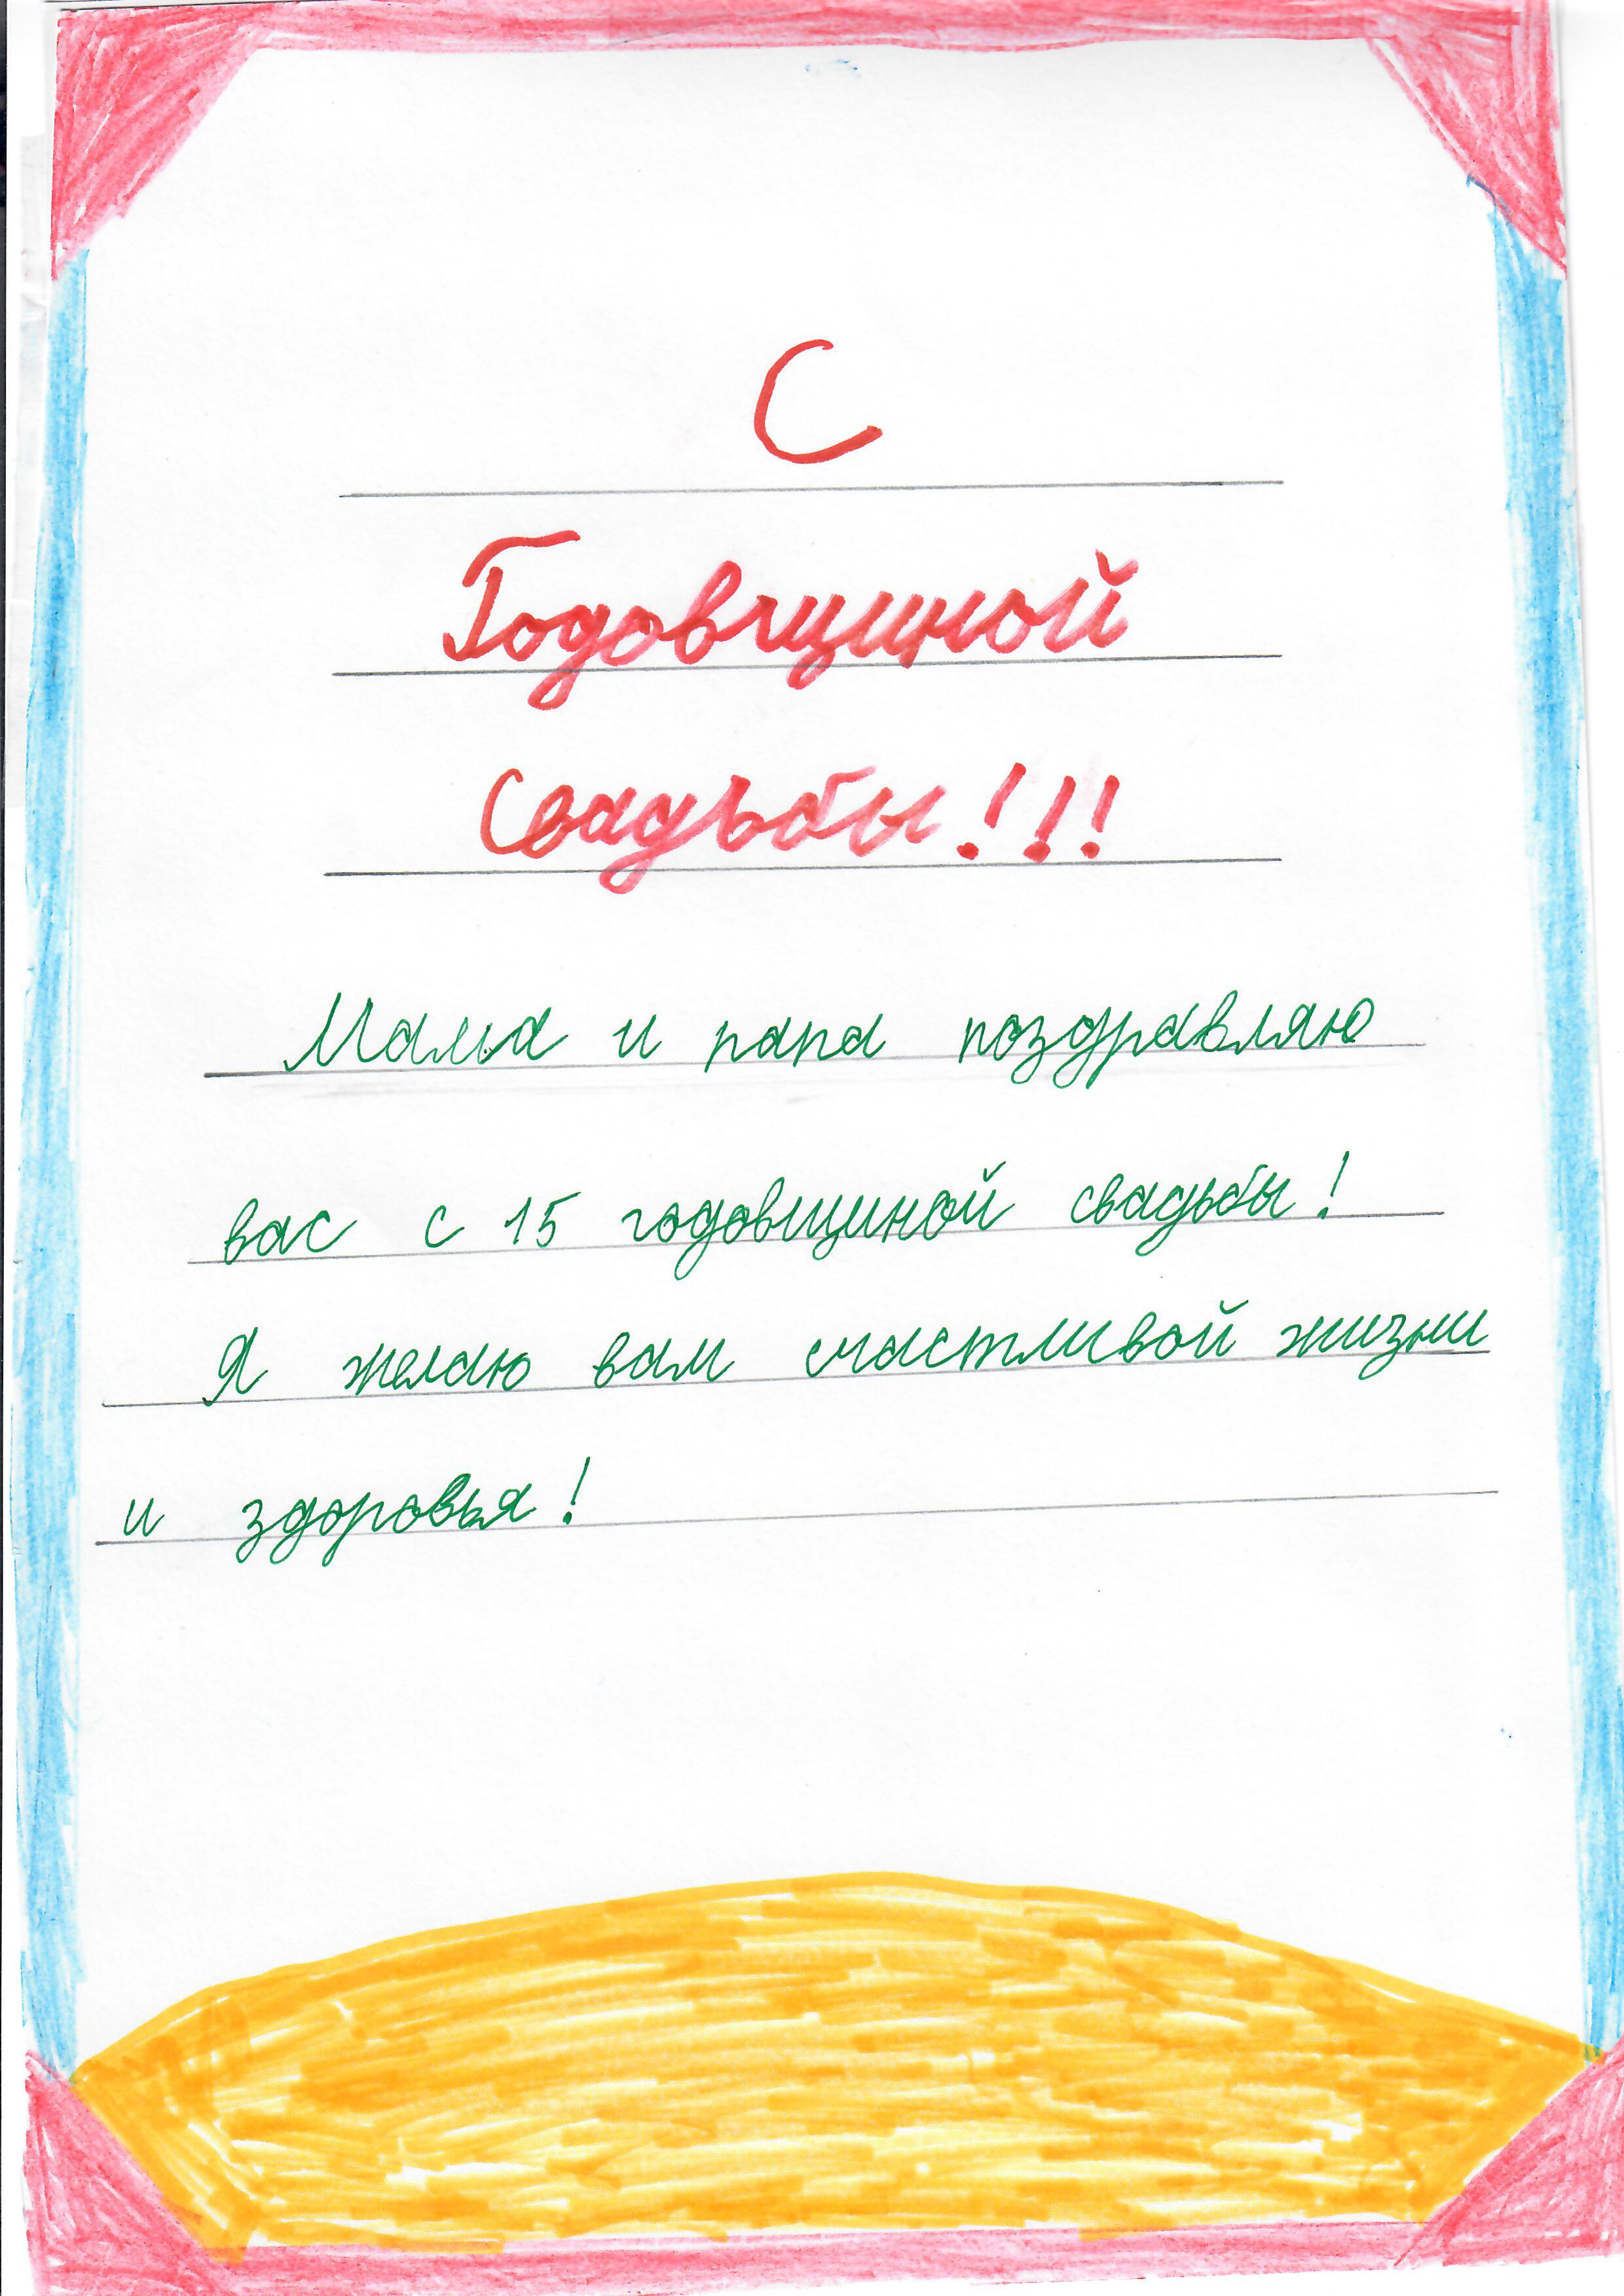 С
Годовщиной
Свадьбы!!!
Мама и папа поздравляю
вас с 15 годовщиной свадьбы!
Я желаю вам счастливой жизни
и здоровья!